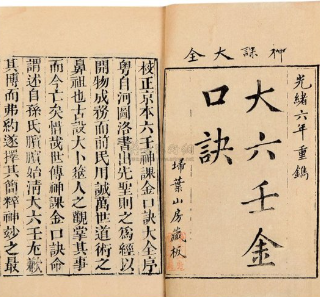 神課大全
光緒六年重鐫
大六壬金
口訣
掃葉山房藏板
校正京本六壬神課金口訣大全序
粵自河圖洛書出先聖則之為經以
開物成務而前民用誠萬世道術之
鼻祖也古設大卜簭人之觀掌其事
而今亡矣惜哉世傳神課金口訣命
謂述自孫氏臏臏始淸大六壬尨歉
其博而弗約遂擇其簡粹神妙之最